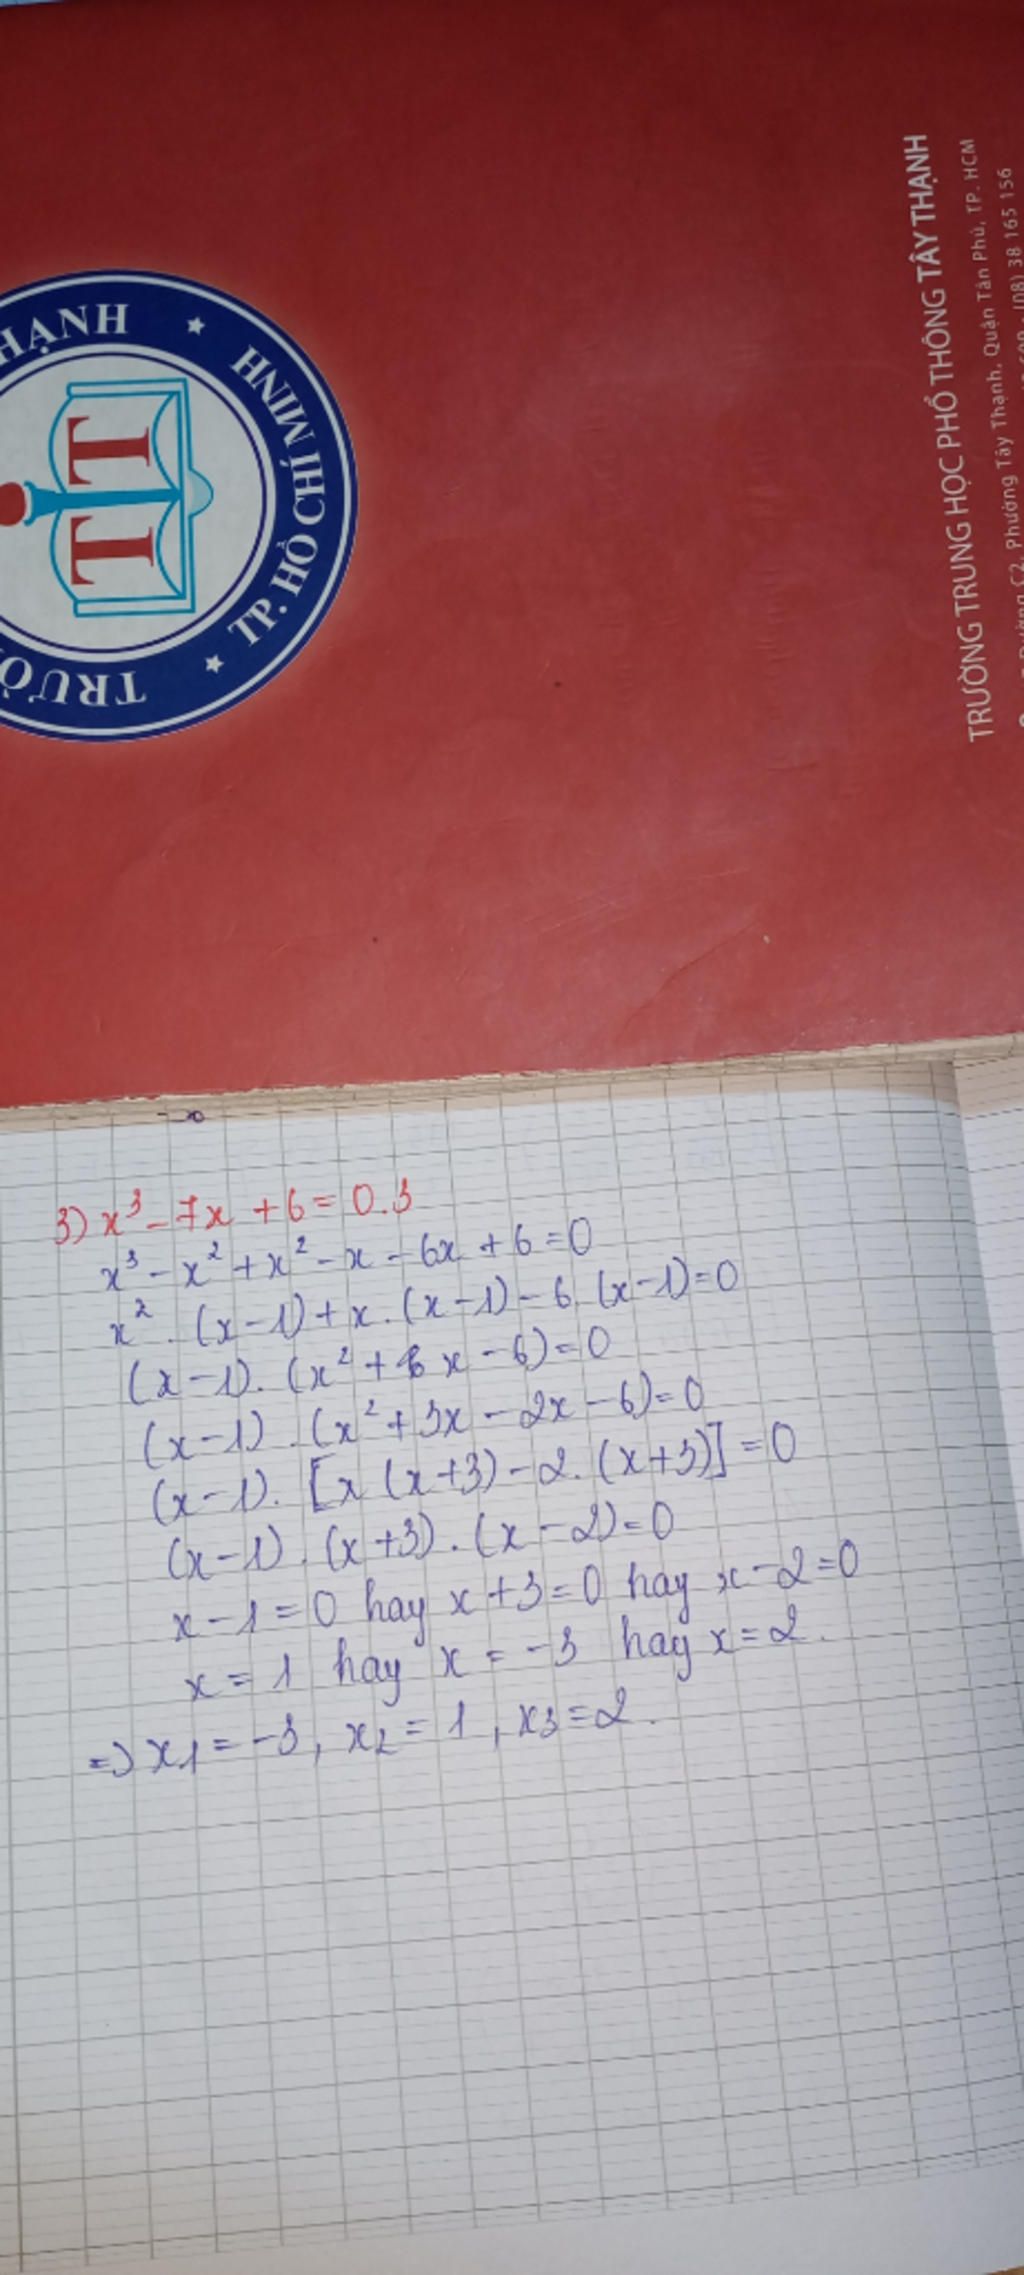 HẠNH
TP. HỒ CHÍ MINH
TT
TRƯỜ
TRƯỜNG TRUNG HỌC PHỔ THÔNG TÂY THẠNH
Đường C2, Phường Tây Thạnh, Quận Tân Phú, TP. HCM
(08) 38 165 156
3) x³ - 7x + 6 = 0.3
x³ - x² + x² - x - 6x + 6 = 0
x² . (x-1) + x . (x-1) - 6 . (x-1) = 0
(x-1) . (x² + x - 6) = 0
(x-1) . (x² + 3x - 2x - 6) = 0
(x-1) . [x (x+3) - 2 . (x+3)] = 0
(x-1) . (x+3) . (x-2) = 0
x - 1 = 0 hay x + 3 = 0 hay x - 2 = 0
x = 1 hay x = -3 hay x = 2.
=> x1 = -3, x2 = 1, x3 = 2.